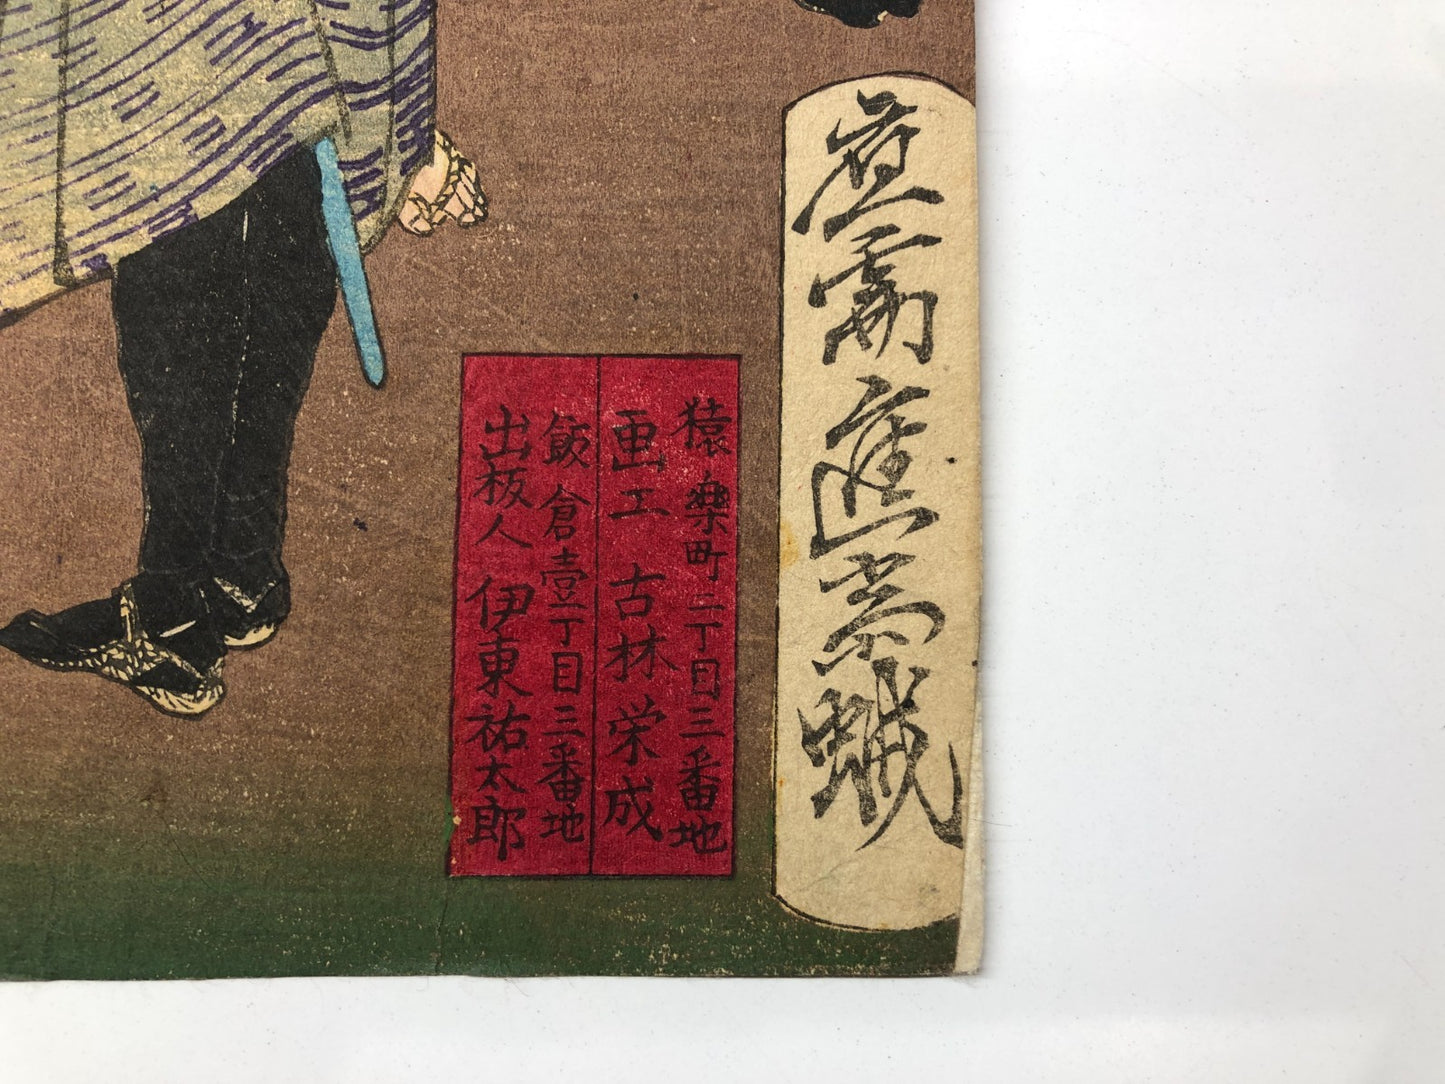 應需進斎
猿樂町二丁目三番地
画工 古林栄成
飯倉壹丁目三番地
出板人 伊東祐太郎